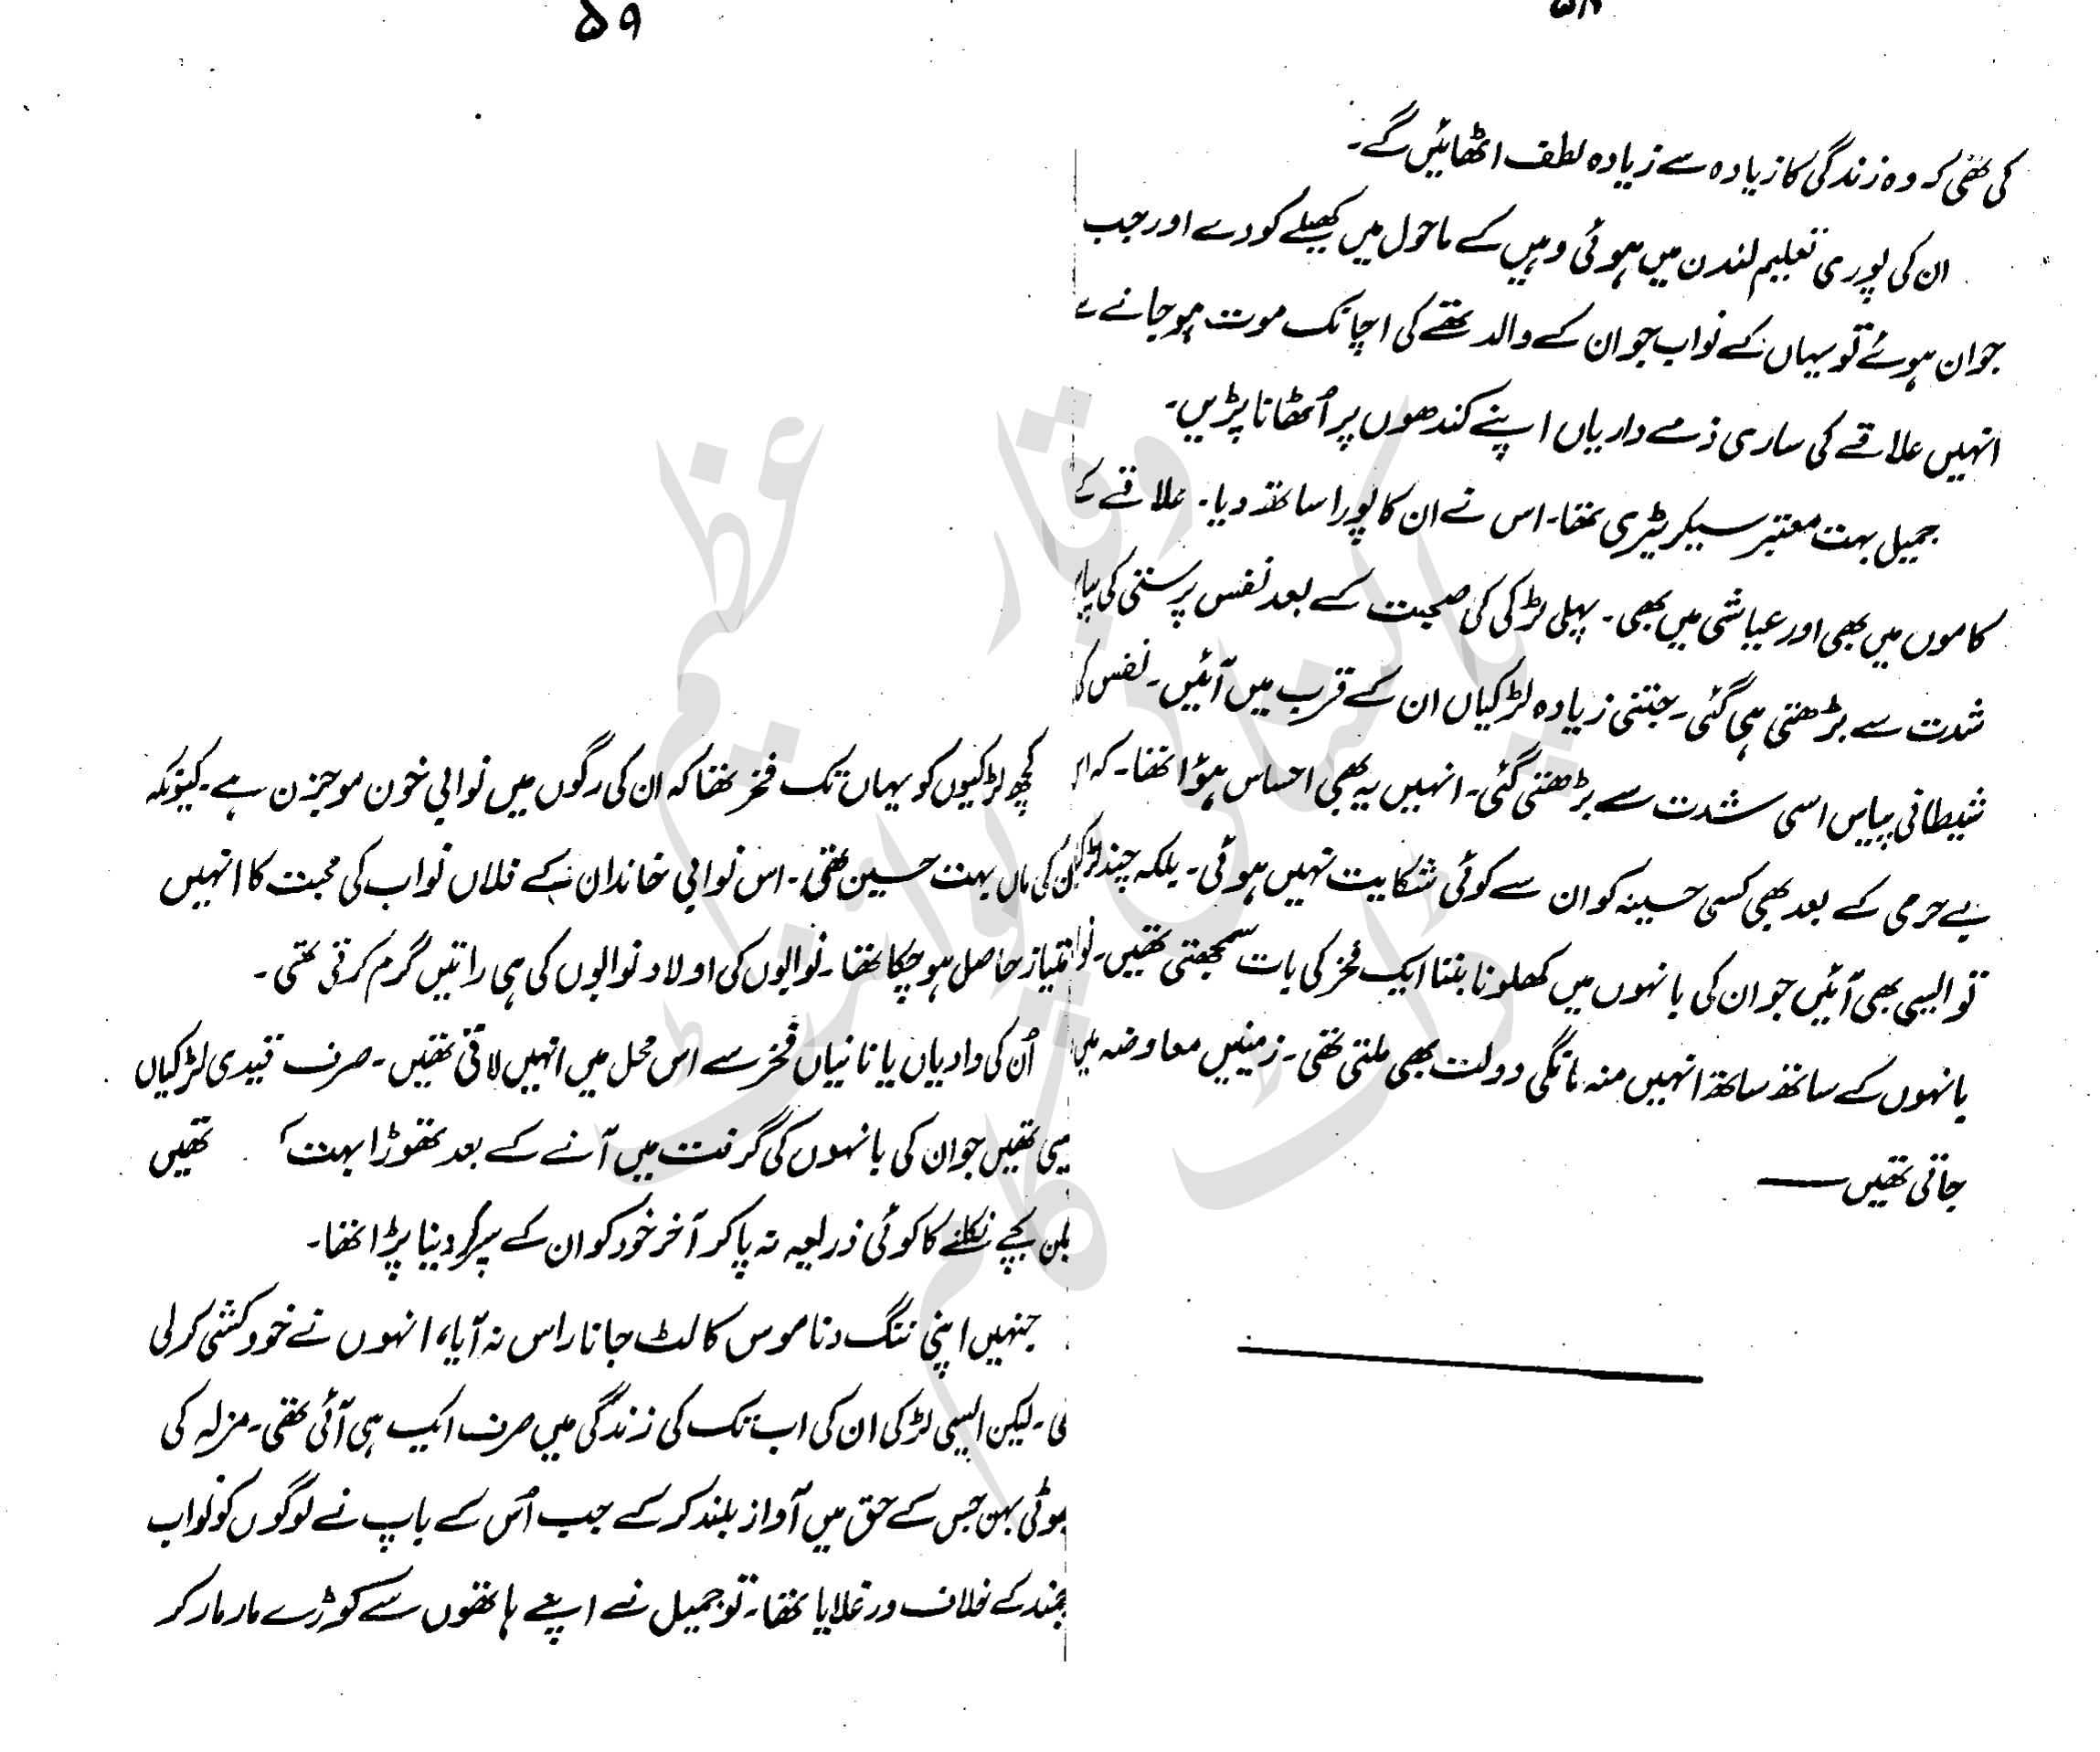 کی تھی کہ وہ زندگی کا زیادہ سے زیادہ لطف اٹھائیں گے۔
ان کی پوری تعلیم لندن میں ہوئی وہیں کے ماحول میں کھیلے کودے اور جب
جوان ہوئے تو یہاں کے نواب جو ان کے والد تھے کی اچانک موت ہو جانے سے
انہیں علاقے کی ساری ذمے داریاں اپنے کندھوں پر اُٹھانا پڑیں۔
جمیل بہت معتبر سیکریٹری تھا۔ اس نے ان کا پورا ساتھ دیا۔ علاقے کے
کاموں میں بھی اور عیاشی میں بھی۔ پہلی لڑکی کی صحبت کے بعد نفس پرستی کی
شدت سے بڑھتی ہی گئی۔ جتنی زیادہ لڑکیاں ان کے قرب میں آئیں۔ نفس کی
شیطانی پیاس اسی شدت سے بڑھتی گئی۔ انہیں یہ بھی احساس ہؤا تھا۔ کہ
بے حرمی کے بعد بھی کسی حسینہ کو ان سے کوئی شکایت نہیں ہوئی۔ بلکہ چند
تو ایسی بھی آئیں جو ان کی بانہوں میں کھلونا بننا ایک فخر کی بات سمجھتی تھیں۔
بانہوں کے ساتھ ساتھ انہیں منہ مانگی دولت بھی ملتی تھی۔ زمینیں معاوضہ میں
جاتی تھیں ——
۵۹
کچھ لڑکیوں کو یہاں تک فخر تھا کہ ان کی رگوں میں نوابی خون موجزن ہے۔ کیونکہ
کی ماں بہت حسین تھی۔ اس نوابی خاندان کے فلاں نواب کی محبت کا انہیں
امتیاز حاصل ہو چکا تھا۔ نوابوں کی اولاد نوابوں کی ہی راتیں گرم کرتی تھی۔
اُن کی دادیاں یا نانیاں فخر سے اس محل میں انہیں لاتی تھیں۔ صرف قیدی لڑکیاں
تھیں جو ان کی بانہوں کی گرفت میں آنے کے بعد تھوڑا بہت تھیں
بچ نکلنے کا کوئی ذریعہ نہ پا کر آخر خود کو ان کے سپرد کر دینا پڑا تھا۔
جنہیں اپنی ننگ و ناموس کا لٹ جانا راس نہ آیا، انہوں نے خودکشی کر لی
۔ لیکن ایسی لڑکی ان کی اب تک کی زندگی میں صرف ایک ہی آئی تھی۔ مزلہ کی
بہن جس کے حق میں آواز بلند کر کے جب اُس کے باپ نے لوگوں کو نواب
کے خلاف ورغلایا تھا۔ تو جمیل نے اپنے ہاتھوں سے کوڑے مار مار کر
وقار عظیم
پاکستانی پوائنٹ
ڈاٹ کام